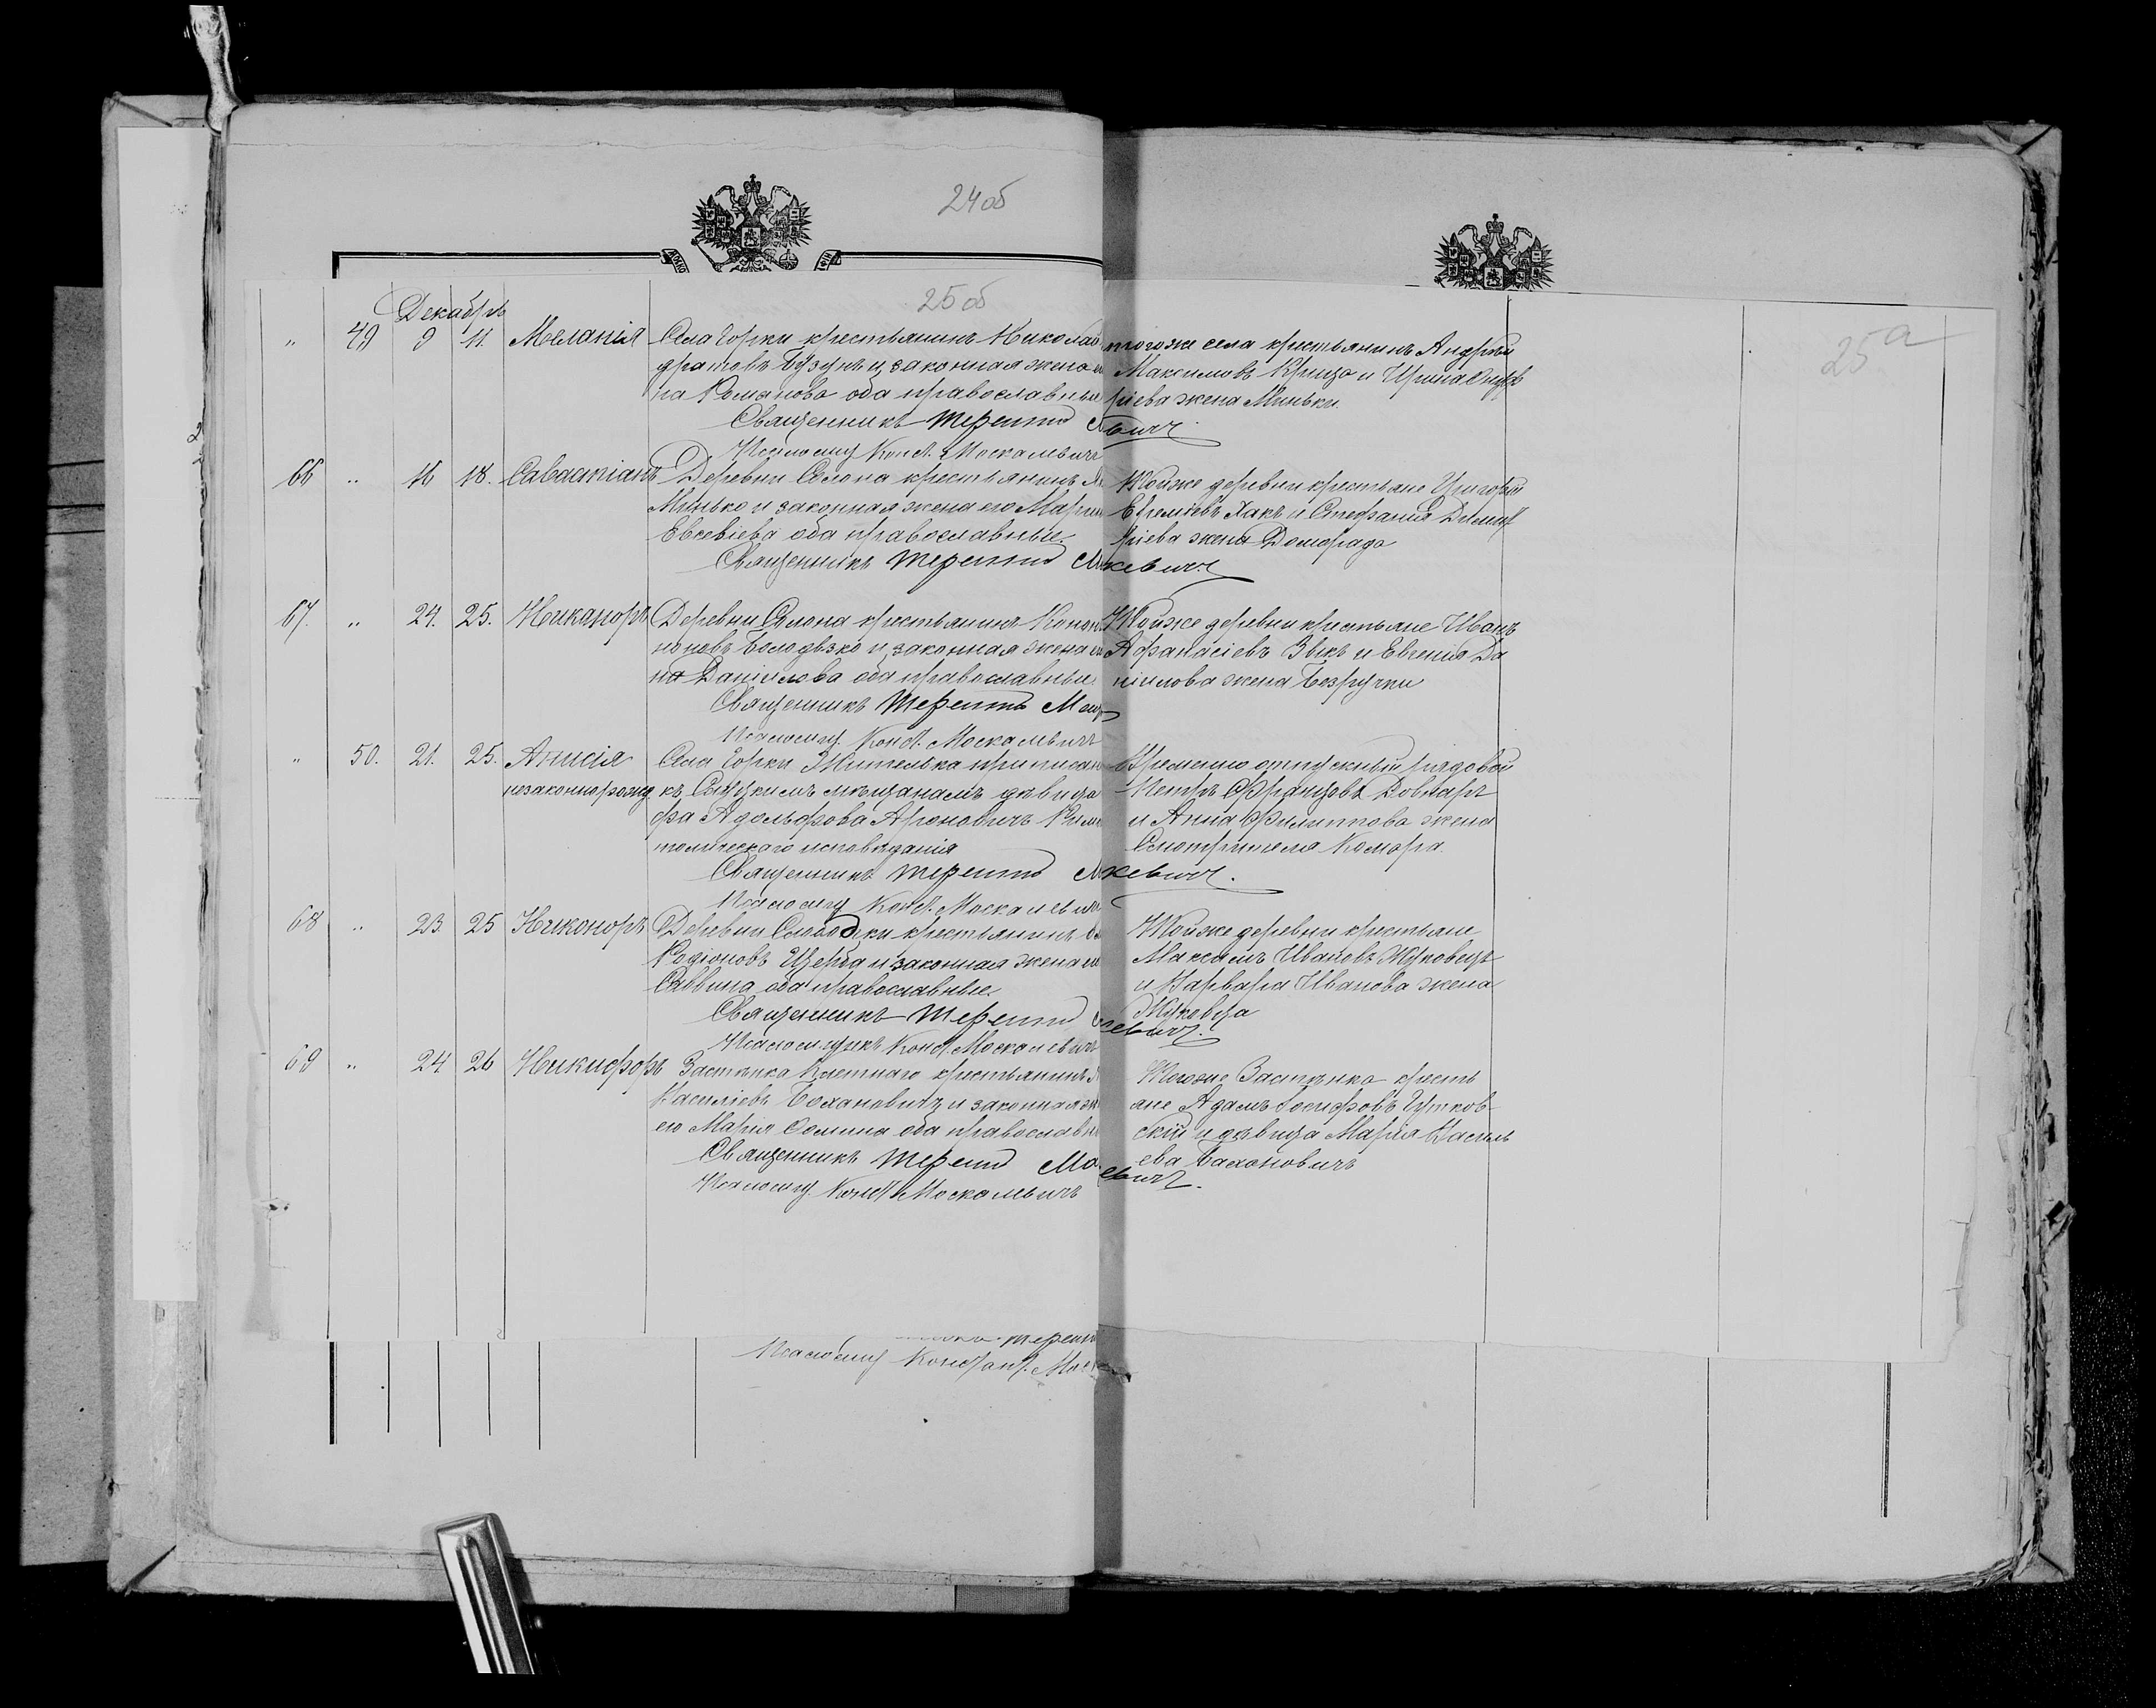 24 об
25 об
25 а
Декабрь
" 49 9 11. Меланія Села Горки крестьянинъ Николай
дратовъ Бузунъ и законная жена
на Романова оба православные
Священникъ Терентій
Псаломщ Конст. Москалевичъ
тогоже села крестьянинъ Андрей
Максимовъ Крицо и Ирина
ріева жена Миньки
евич
66 " 16 18. Савастіанъ Деревни Солона крестьянинъ
Минько и законная жена его Марія
Евсевіева оба православные.
Священникъ Терентій
Тойже деревни крестьяне Григорій
Ефремовъ Хакъ и Стефанія Димит
ріева жена Доморада
кевич
67. " 24. 25. Никаноръ Деревни Солона крестьянинъ Конон
ноновъ Болодзько и законная жена
на Даніилова оба православные.
Священникъ Терентій
Псаломщ. Конст. Москалевичъ
Тойже деревни крестьяне Иванъ
Афанасіевъ Зыкъ и Евгенія Да
ніилова жена Безручки
" 50. 21. 25. Анисія Села Горки Жителька приписан
незаконнорожд. къ Слуцкимъ мѣщанамъ дѣвица
фа Адольфова Ароновичъ Рим
толическаго исповѣданія
Священникъ Терентій
Псаломщ Конст. Москалевич
Временно отпускный рядовой
Петръ Францовъ Довнаръ
и Анна Филиппова жена
Смотрителя Комара
кевич.
68 " 23 25 Никоноръ Деревни Слободки крестьянинъ
Родіоновъ Щерба и законная жена его
Саввина оба православные.
Священникъ Терентій
Псаломщикъ Конст. Москалевичъ
Тойже деревни крестьяне
Максимъ Ивановъ Жуковецъ
и Варвара Иванова жена
Жуковца
евич.
69 " 24 26 Никифоръ Застѣнка крестьянинъ
Василіевъ Боханович и законная
его Марія Фомина оба православн
Священникъ Терентій
Псаломщ. Конст Москалевичъ
Тогоже Застѣнка кресть
яне Адамъ Іосифовъ Гутков-
скій и дѣвица Марія Василь
ева Баханович
евич.
Терент
Псаломщ Констант.